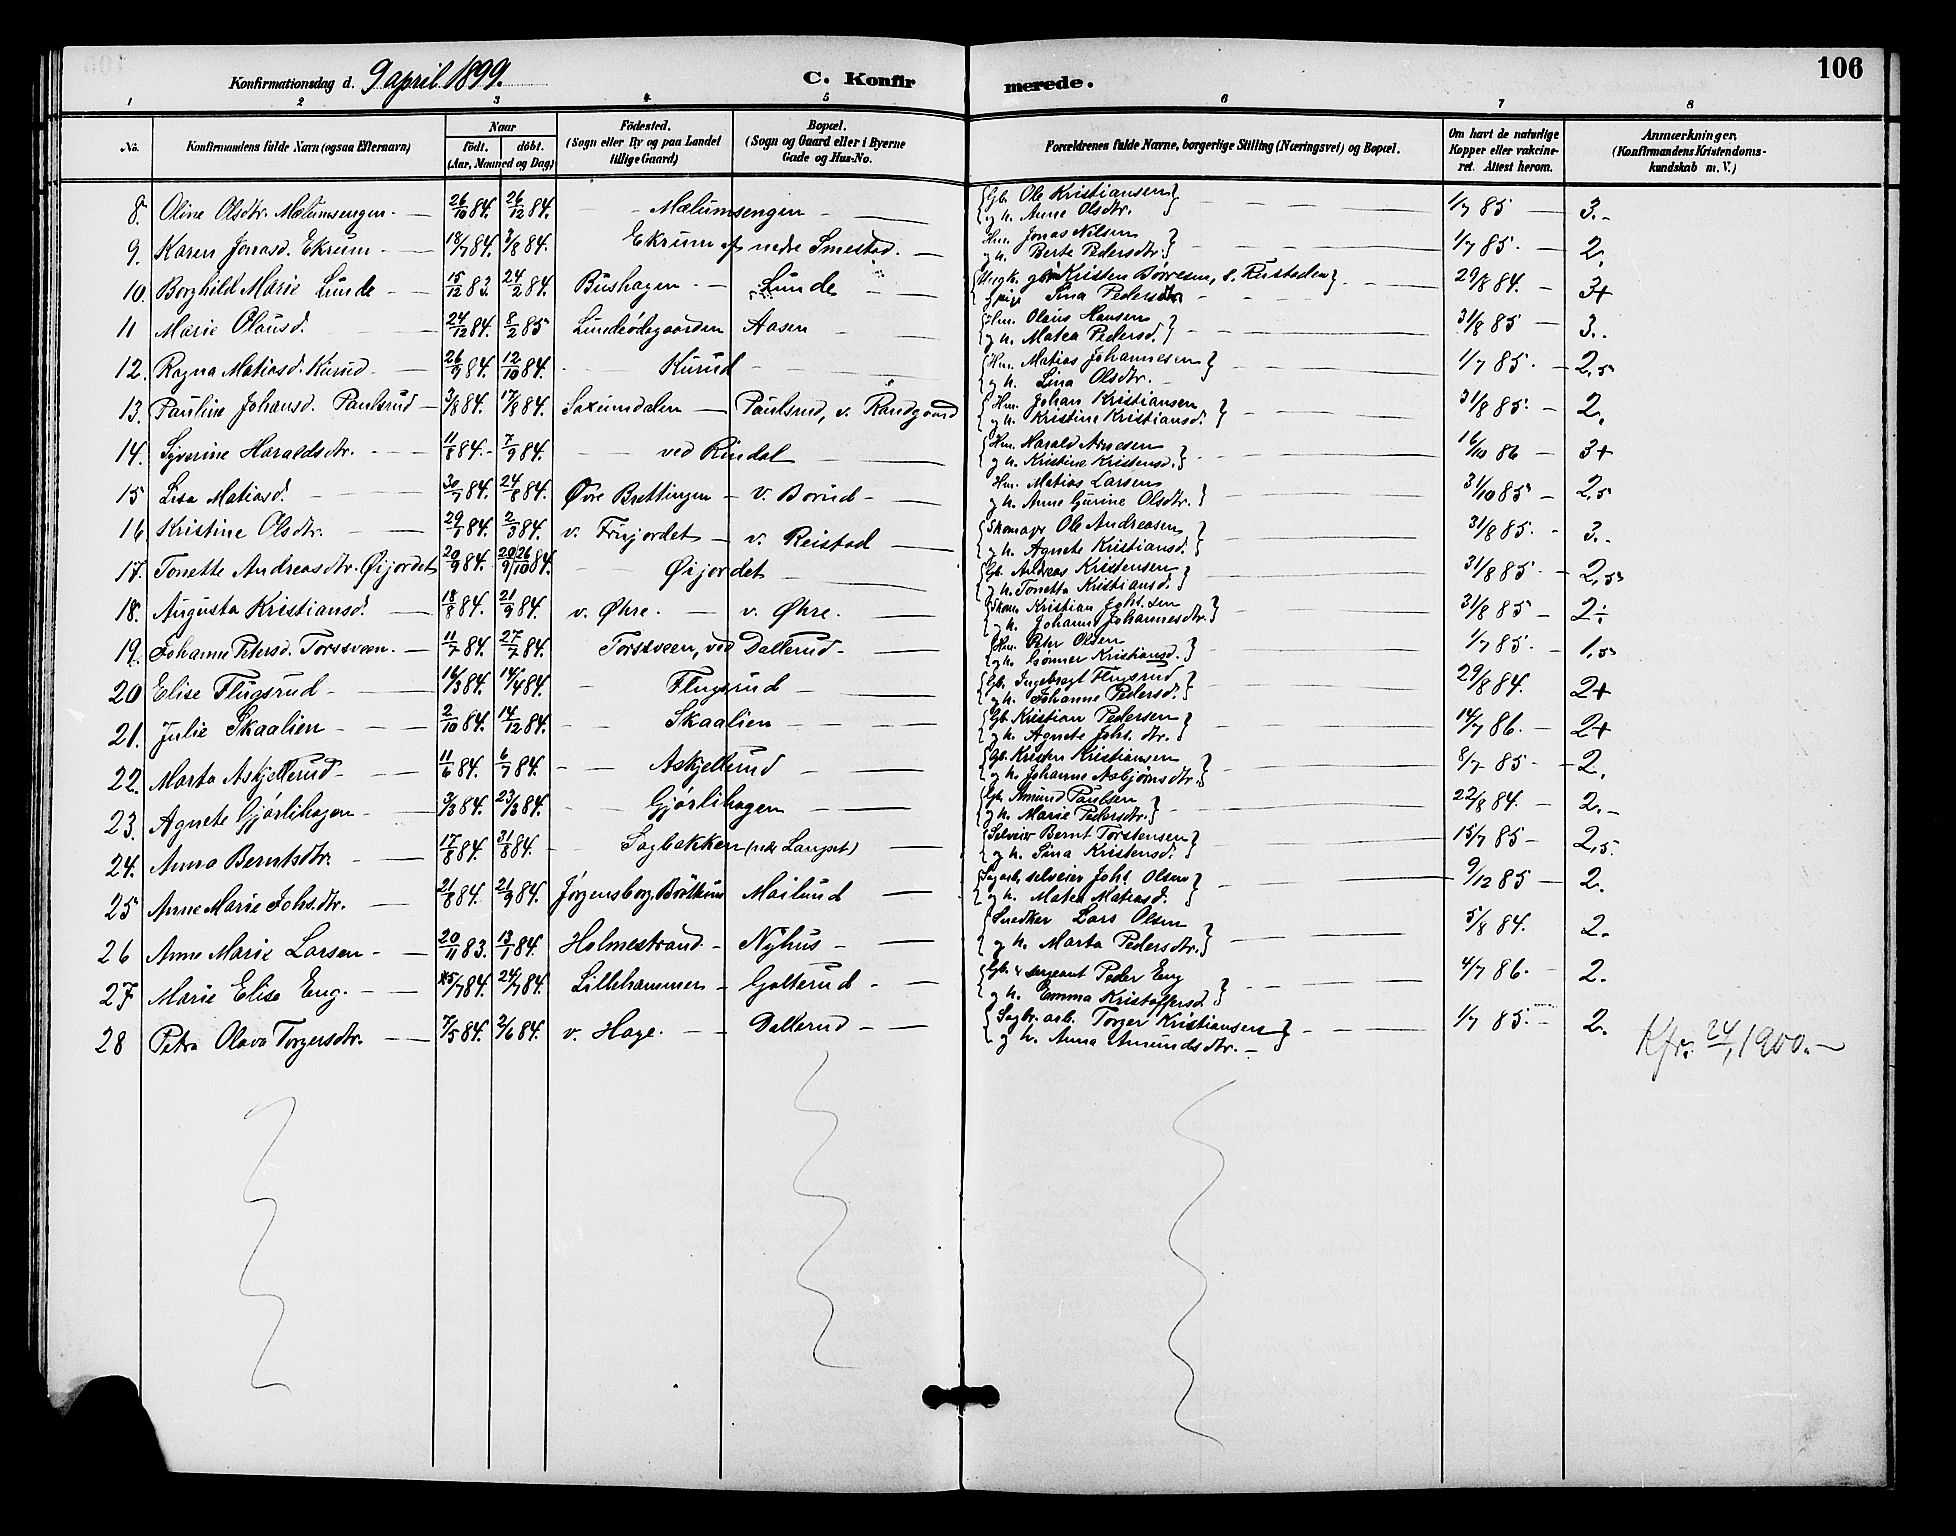 106
Konfirmationsdag d. 9 april 1899.
C. Konfirmerede.
1 2 3 4 5 6 7 8
No. Konfirmandens fulde Navn (ogsaa Efternavn) Naar födt. döbt. (Aar, Maaned og Dag) Födested. (Sogn eller By og paa Landet tillige Gaard) Bopæl. (Sogn og Gaard eller i Byerne Gade og Hus-No. Forældrenes fulde Navne, borgerlige Stilling (Næringsvei) og Bopæl. Om havt de naturlige Kopper eller vakcineret. Attest herom. Anmærkninger. (Konfirmandens Kristendomskundskab m. V.)
8. Oline Olsdtr. Mælumsengen. 26/10 84. 26/12 84. Mælumsengen {Gb. Ole Kristiansen og h. Anne Olsdtr.} 1/7 85 3.
9. Karen Jonasd. Ekrum 18/7 84. 3/8 84. Ekrum af nedre Smestad. Hm. Jonas Nilsen og h. Berte Pedersdtr.} 1/7 85. 2.
10. Borghild Marie Lunde 15/12 83. 24/2 84. Bushagen Lunde Kristen Børresen, s. Rustaden} Sina Pedersdtr 29/8 84. 3+
11 Marie Olausd. 24/12 84. 8/2 85 Lundeødegaarden Aasen {Hm. Olaus Hansen og h. Matea Pedersd.} 31/8 85 3.
12. Ragna Matiasd. Kurud 26/9 84. 12/10 84. Kurud {Hm. Matias Johannesen og h. Lina Olsdtr.} 1/7 85. 2,5
13. Pauline Johansd. Paulsrud 3/8 84. 17/8 84. Saxumdalen Paulsrud, v. Randgaard {Hm. Johan Kristiansen og h. Kristine Kristiansd.} 31/8 85. 2.
14. Syverine Haraldsdtr. 11/8 84. 7/9 84. ved Rindal {Hm. Harald Arnesen og h. Kristine Kristensd.} 16/10 86 3+
15 Lisa Matiasd. 30/7 84. 24/8 84. Øvre Brettingen v. Borud Hm. Matias Larsen og h. Anne Gurine Olsdtr.} 31/10 85 2,5
16 Kristine Olsdtr. 29/1 84. 2/3 84. v. Frujordet v. Reistad {Skomager Ole Andreasen og h. Agnete Kristiansd.} 31/8 85. 3.
17. Tonette Andreasdtr. Øijordet 20/9 84. 20/9 26/10 84. Øijordet {Gb. Andreas Kristensen og h. Tonetta Kristiansd.} 31/8 85. 2,5
18. Augusta Kristiansd. 18/8 84. 21/9 84. v. Øhre. v. Øhre. {Skom. Kristian Johs.sen og h. Johanne Johannesdtr.} 31/8 85 2÷
19. Johanne Petersd. Torssveen. 11/7 84. 27/7 84. Torssveen, ved Dallerud {Hm. Peter Olsen og h. Gunner Kristiansd.} 1/7 85. 1,5
20 Elise Flugsrud 16/3 84. 14/4 84. Flugsrud {Gb. Ingebregt Flugsrud og h. Johanne Pedersd.} 29/8 84. 2+
21. Julie Skaalien 2/10 84. 14/12 84. Skaalien {Gb. Kristian Pedersen og h. Agnete Johs. dtr.} 14/7 86. 2+
22. Marta Askjellerud 11/6 84. 6/7 84. Askjellerud {Gb. Kristen Kristiansen og h. Johanne Asbjørnsdtr.} 8/7 85 2.
23. Agnete Gjørlihagen 3/3 84. 23/3 84. Gjørlihagen {Gb. Amund Paulsen og h. Marie Pedersdtr.} 22/8 84. 2.
24. Anna Berntsdtr. 17/8 84. 31/8 84. Sagbakken (ndr. Langset) {Selveier Bernt Torstensen og h. Sina Kristensd.} 15/7 85 2,5.
25 Anne Marie Johs.dtr. 21/8 84. 21/9 84. Jørgensborg, Brøttum Mailund {Sagarb. selveier Johs. Olsen og h. Matea Matiasd.} 9/12 85 2.
26 Anne Marie Larsen 20/11 83. 13/7 84. Holmestrand Nyhus {Snedker Lars Olsen og h. Marta Pedersdtr.} 5/8 84. 2.
27 Marie Elise Eng. 5/7 84. 24/7 84. Lillehammer Golterud {Gb. & sergeant Peder Eng og h. Emma Kristoffersd.} 4/7 86. 2.
28 Petra Olava Torgersdtr. 7/5 84. 2/6 84. v. Hage. Dallerud {Sagbr. arb. Torger Kristiansen og h. Anna Amundsdtr.} 1/7 85. 2.
Kfr. 24/1 1900.